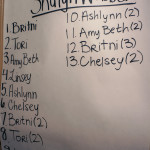 1. Britni
2. Tori
3. Amy Beth
4. Linsey
5. Ashlynn
6. Chelsey
7. Britni(2)
8. Tori(2)
10. Ashlynn(2)
11. Amy Beth(2)
12. Britni(3)
13. Chelsey(2)